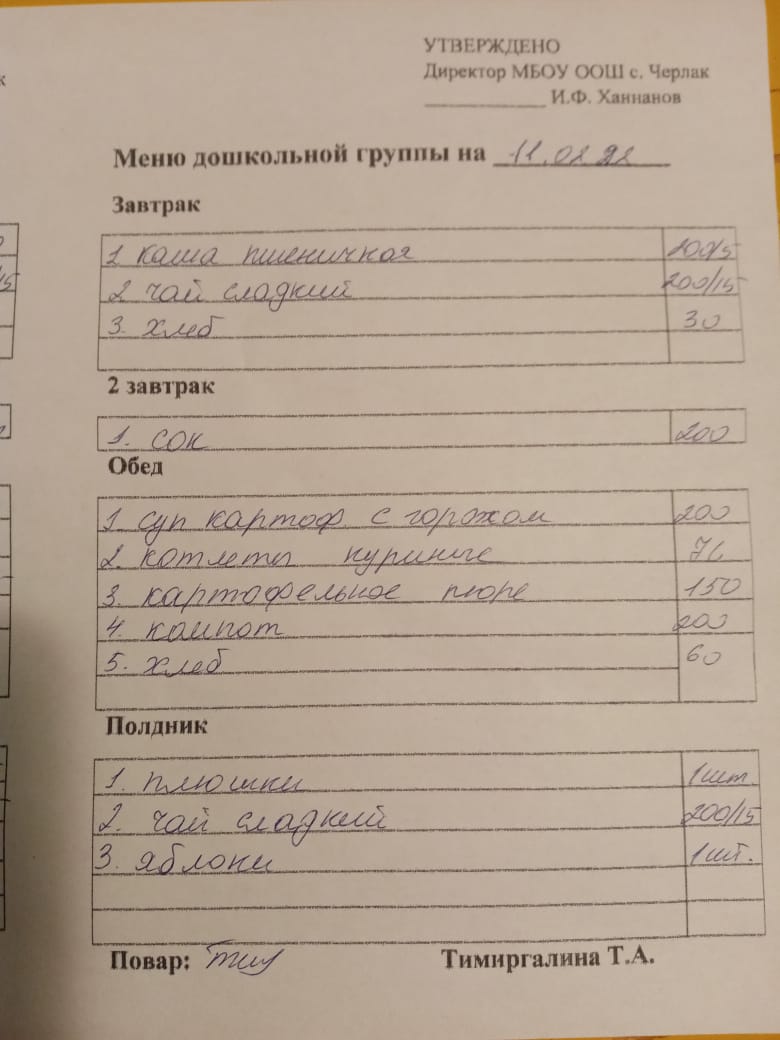 УТВЕРЖДЕНО
Директор МБОУ ООШ с. Черлак
____________ И.Ф. Ханнанов
Меню дошкольной группы на 11.02 22
Завтрак
1 каша пшеничная 200/5
2 чай сладкий 200/15
3. хлеб 30
2 завтрак
1. сок 200
Обед
1 суп картоф. с горохом 200
2. котлеты куриные
3. картофельное пюре 150
4. компот 200
5. хлеб 60
Полдник
1. плюшки 1шт.
2. чай сладкий 200/15
3. яблоки 1шт.
Повар: Тимиргалина Т.А.